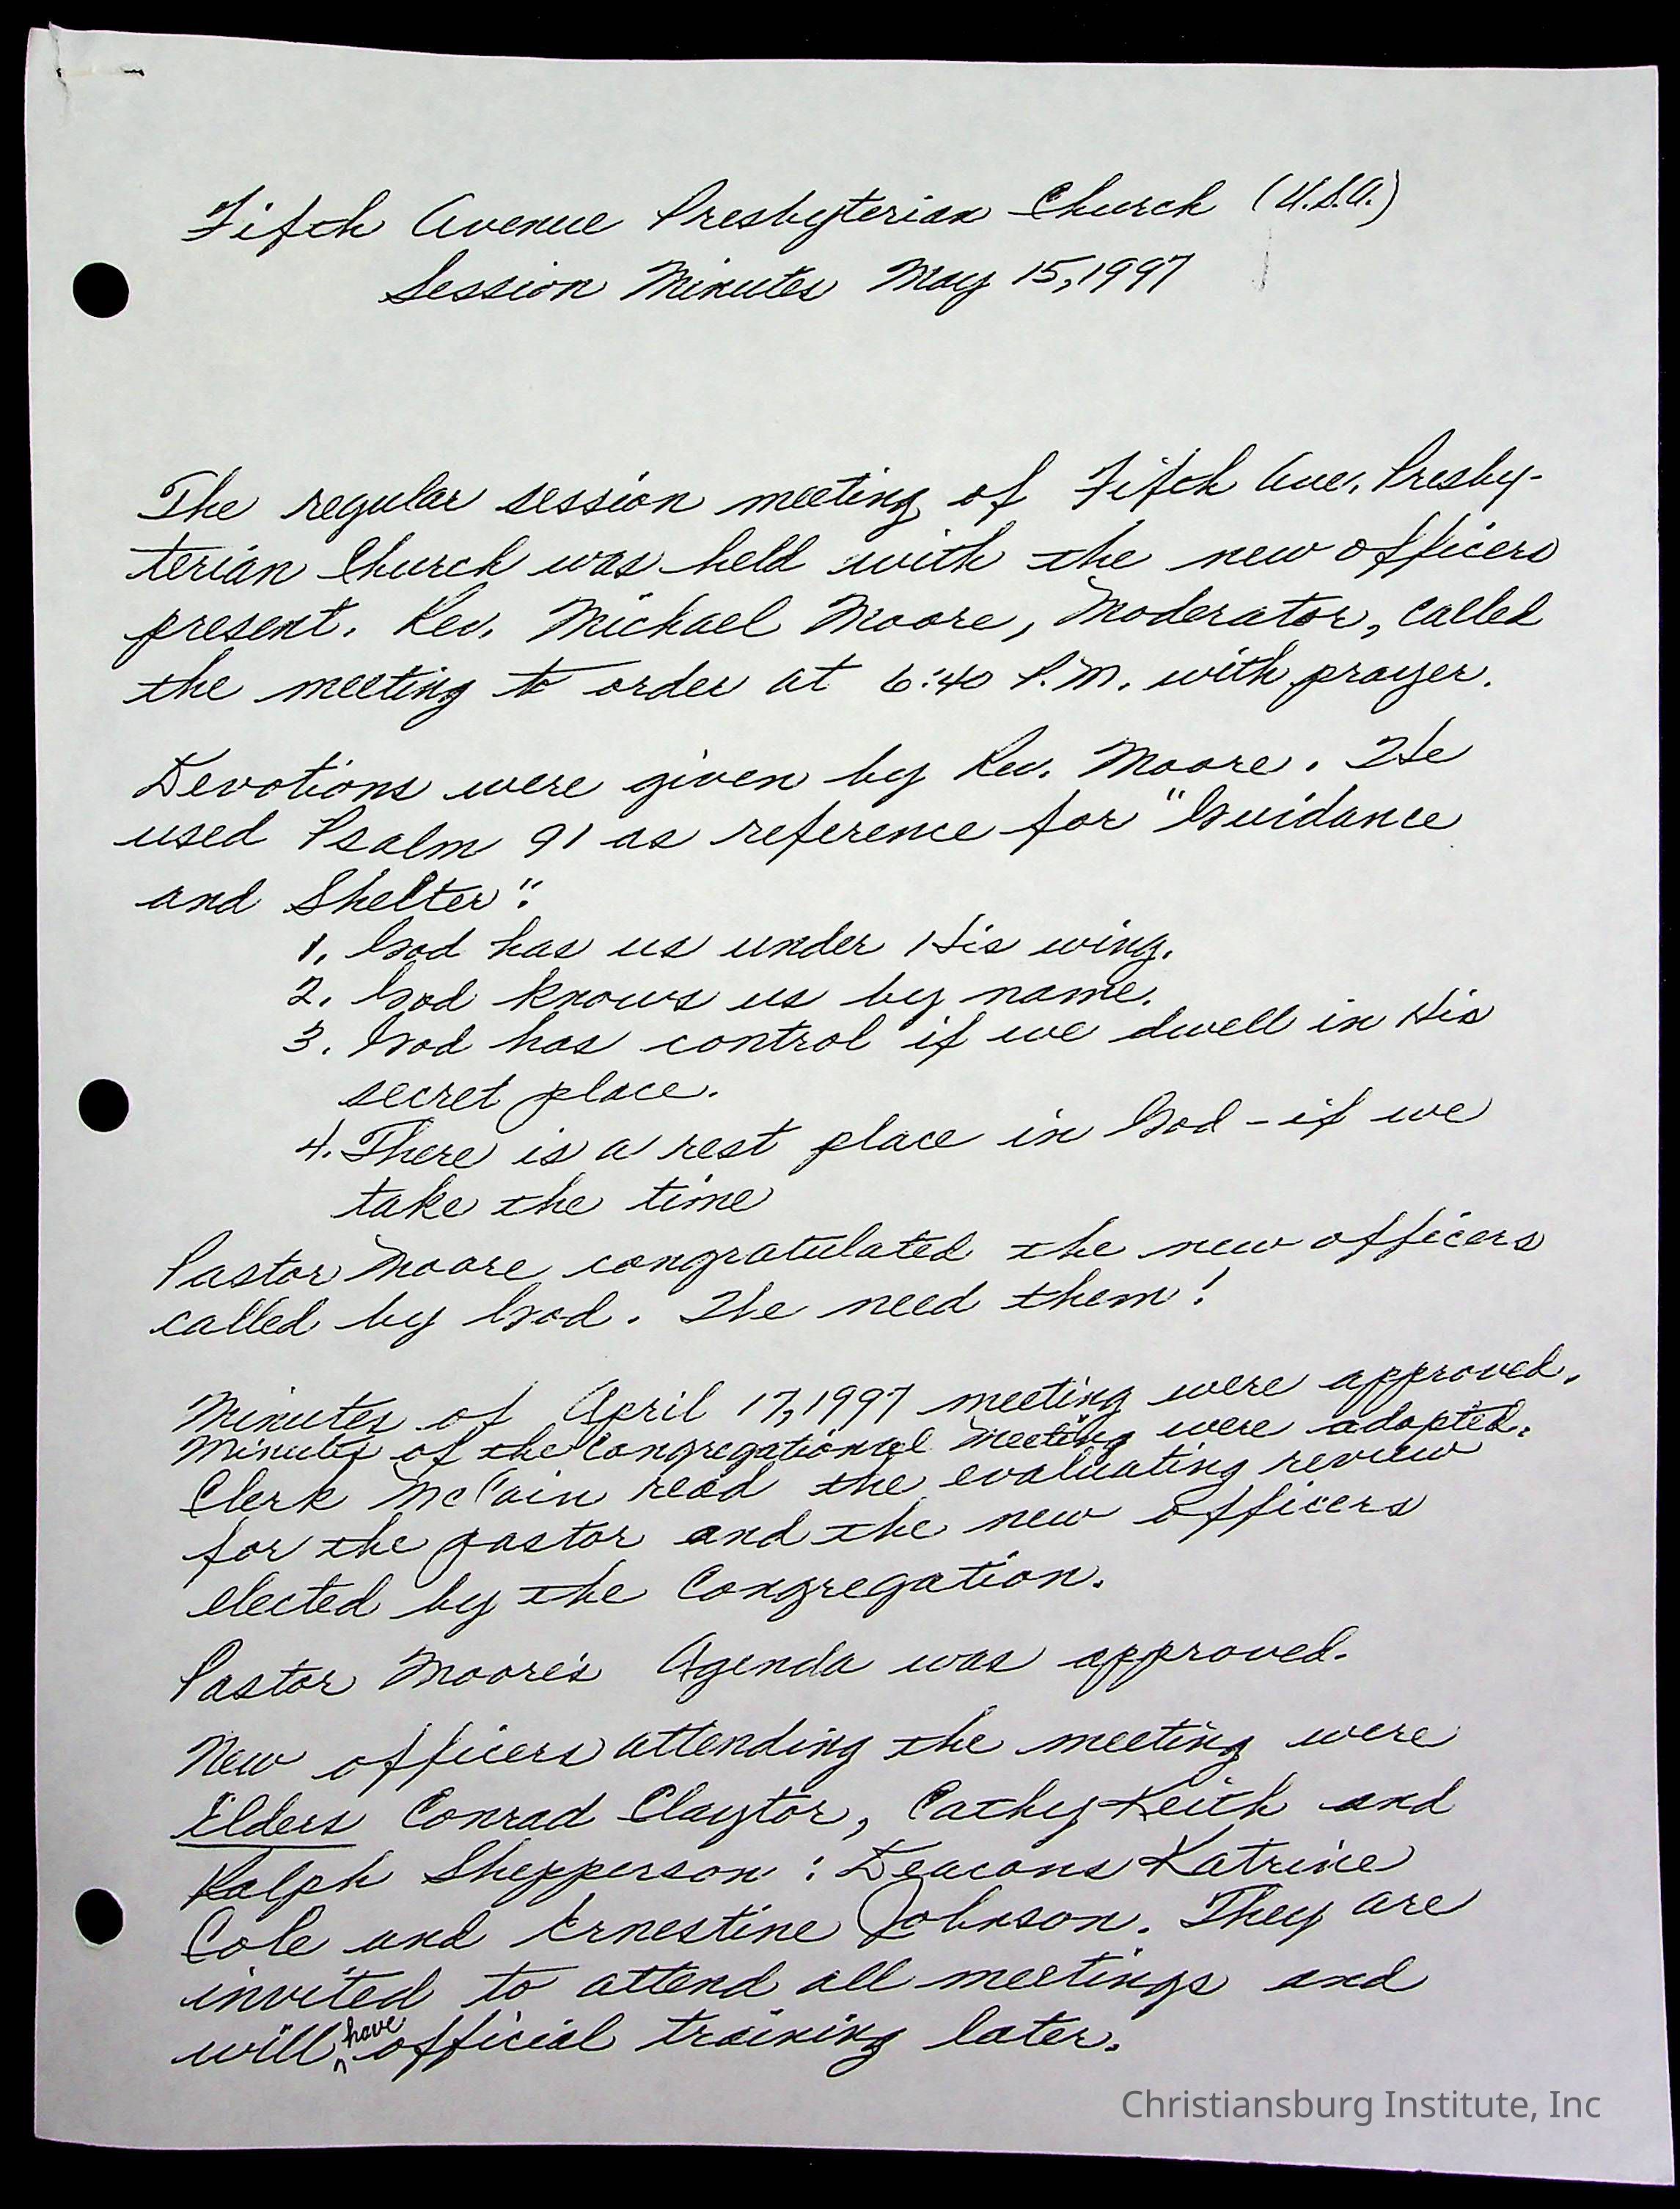 Fifth Avenue Presbyterian Church (U.S.A.)
Session Minutes May 15, 1997
The regular session meeting of Fifth Ave. Presby-
terian Church was held with the new officers
present. Rev. Michael Moore, Moderator, called
the meeting to order at 6:40 P.M. with prayer.
Devotions were given by Rev. Moore. He
used Psalm 91 as reference for "Guidance
and Shelter":
1. God has us under His wing.
2. God knows us by name.
3. God has control if we dwell in His
secret place.
4. There is a rest place in God - if we
take the time
Pastor Moore congratulated the new officers
called by God. We need them!
Minutes of April 17, 1997 meeting were approved.
Minutes of the Congregational Meeting were adopted.
Clerk McCain read the evaluating review
for the pastor and the new officers
elected by the Congregation.
Pastor Moore's Agenda was approved.
New officers attending the meeting were
Elders Conrad Claytor, Cathy Keith and
Ralph Shepperson : Deacons Katrine
Cole and Ernestine Johnson. They are
invited to attend all meetings and
will have official training later.
Christiansburg Institute, Inc